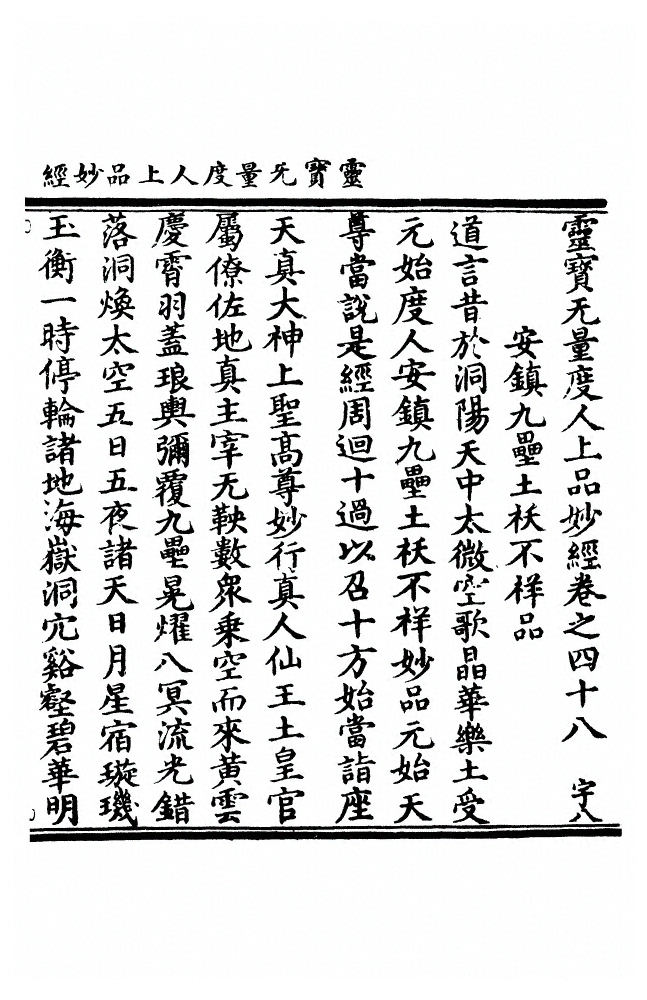 靈寶无量度人上品妙經
靈寶无量度人上品妙經卷之四十八 字八
安鎮九壘土祅不祥品
道言昔於洞陽天中太微空歌晶華樂土受
元始度人安鎮九壘土祅不祥妙品元始天
尊當說是經周迴十過以召十方始當詣座
天真大神上聖高尊妙行真人仙王土皇官
屬僚佐地真主宰无鞅數衆乗空而來黃雲
慶霄羽蓋琅輿彌覆九壘晃燿八冥流光錯
落洞煥太空五日五夜諸天日月星宿璇璣
玉衡一時停輪諸地海嶽洞穴谿壑碧華明